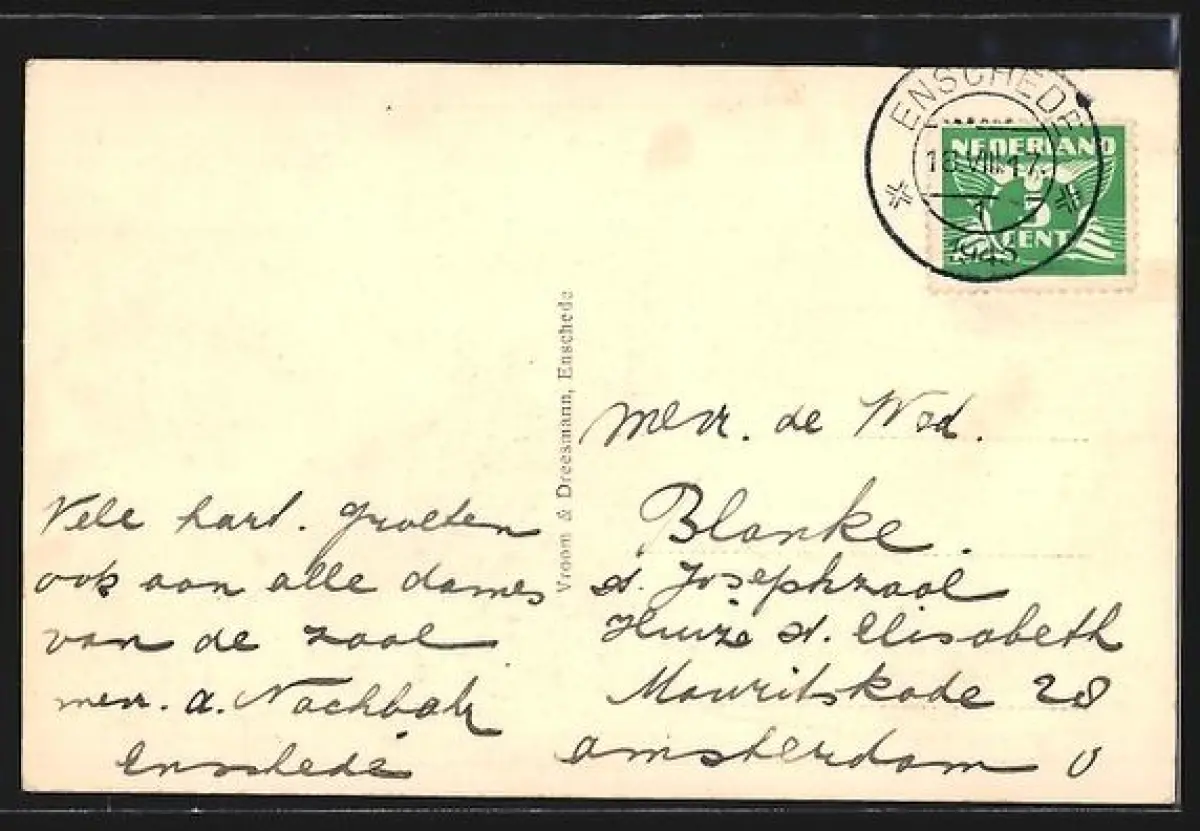 ENSCHEDE
NEDERLAND
18.VIII.17
5
CENT
1945
Vroom & Dreesmann, Enschede
Vele hart. groeten
ook aan alle dames
van de zaal
mevr. A. Nachbahr
Enschedé
Mevr. de Wed.
Blanke.
St. Josephzaal
Huize St. Elisabeth
Mauritskade 28
Amsterdam O